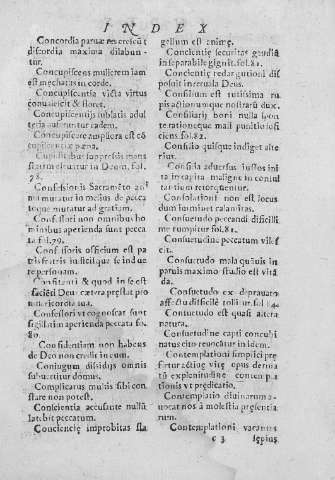 INDEX
Concordia paruæ res crescũt
discordia maxima dilabun-
tur.
Concupiscens mulierem iam
est mechatus in corde.
Concupiscentia victa virtus
conualescit & floret.
Concupiscentijs sublatis adul
teria subuertur eadem.
Concupiscere ampliora est cõ
cupiscentię pœna.
Cupiditatis
statim excitatur in Deum. fol.
78.
Confessioris Sacramẽto ani
ma mutatur in melius de pecca
toque mutatur ad gratiam.
Confessori non omnibus ho
minibus aperienda sunt pecca
ta fol. 79.
Confessoris officium est pa
tris fratris iustitięque se indue
re personam.
Confitenti & quod in se est
facieti Deus cætera pręstat pro
misericordia sua.
Confessori vt cognoscat sunt
sigillatim aperienda peccata fo.
80.
Confidentiam non habens
de Deo non credit in eum.
Coniugum dissidijs omnis
subuertitur domus.
Complicatus multis sibi con
stare non potest.
Conscientia accusante nullũ
latebit peccatum.
Conscientię improbitas fla
gellum est animę.
Conscientię securitas gaudiũ
inseparabile gignit. fol. 81.
Conscientię redargutioni dis
posuit increnda Deus.
Consilium est tutissima ru
pis actionumque nostrarũ dux.
Consiliarij boni nulla con
te rationeque mali punitio iosi
ciens fol. 82.
Consilio quisque indiget alte
rius.
Consilia aduersus iustos ini
ta in capita maligne in consul
tantium retorquentur.
Consolationi non est locus
dum homines calamitas.
Consuetudo peccandi difficilli
me rumpitur fol. 81.
Consuetudine peccatum viles
cit.
Consuetudo mala quauis in
paruis maximo studio est vitã
da.
Consuetudo ex deprauato
affectu difficile tollitur fol 84.
Consuetudo est quasi altera
natura.
Consuetudine capti concubi
natus cito reuocãtur in idem.
Contemplationi simplici pręs
fertur actiuę vitę opus derma
tũ explenitudine contempla
tionis vt prędicatio.
Contemplatio diuinarum a-
uocat nos à molestia pręsentia
rum.
Contemplationi vacantes
c 3 sępius